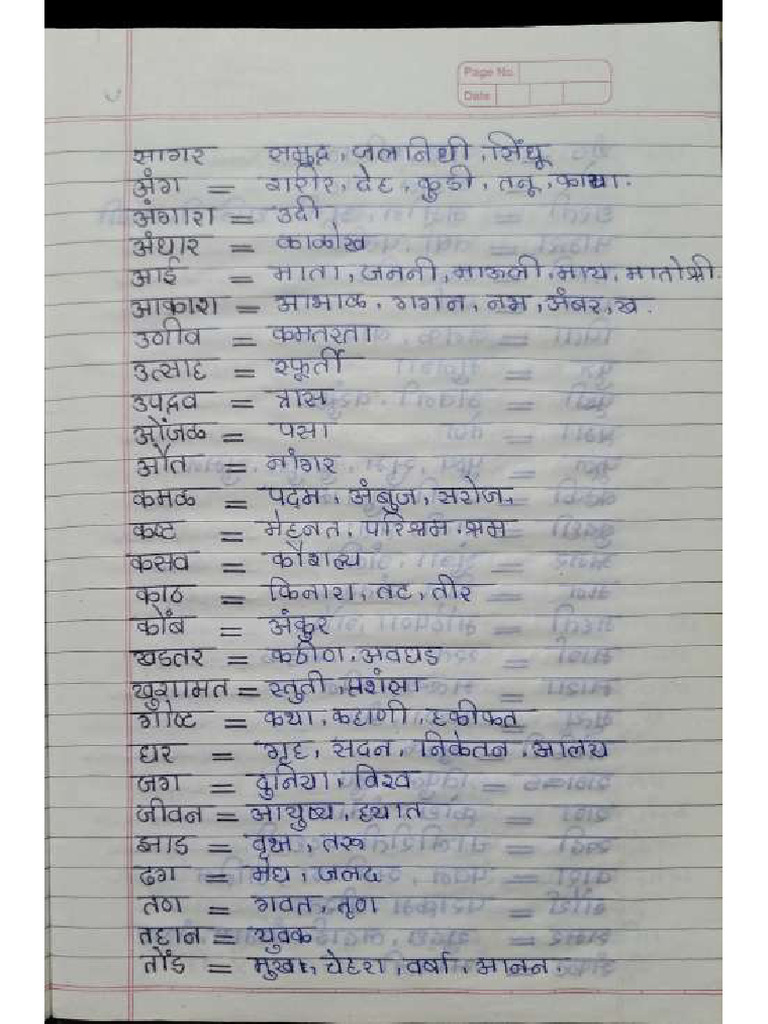 Page No.
Date
सागर समुद्र, जलनिधी, सिंधू
अंग = शरीर, देह, कुडी, तनू, काया.
अंगारा = उदी
अंधार = काळोख
आई = माता, जननी, माऊली, माय, मातोश्री.
आकाश = आभाळ, गगन, नभ, अंबर, ख.
उणीव = कमतरता
उत्साह = स्फूर्ती
उपद्रव = त्रास
ओंजळ = पसा
औत = नांगर
कमळ = पद्म, अंबुज, सरोज,
कष्ट = मेहनत, परिश्रम, श्रम
कसब = कौशल्य
काठ = किनारा, तट, तीर
कोंब = अंकुर
खडतर = कठीण, अवघड
खुशामत = स्तुती, प्रशंसा
गोष्ट = कथा, कहाणी, हकीकत
घर = गृह, सदन, निकेतन, आलय
जग = दुनिया, विश्व
जीवन = आयुष्य, हयात
झाड = वृक्ष, तरू
ढग = मेघ, जलद
तण = गवत, तृण
तहान = युवक
तोंड = मुख, चेहरा, वर्षा, आनन.